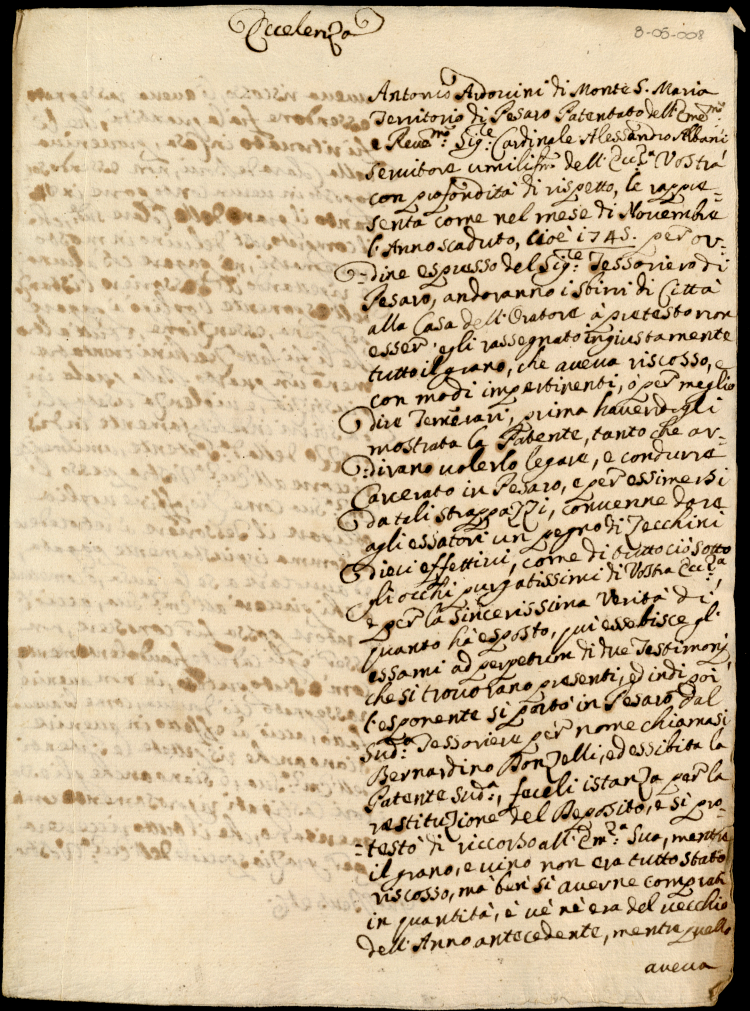 Eccelenza
8-05-008
Antonio Ardovini di Monte S. Maria
Territorio di Pesaro Patentato dell'Eme:mo
e Reve:mo Sig:re Cardinale Alessandro Albani
servitore umilissmo dell'Ecc:za Vostra
con profondità di rispetto, le rappre=
senta come nel mese di Novembre
l'Anno scaduto, cioè 1745. per or=
=dine espresso del Sig:re Tessoriero di
Pesaro, andoranno i sbirri di Città
alla Casa dell'Oratore à pretesto non
esser' egli rassegnato ingiustamente
tutto il grano, che aveva riscosso, e
con modi impertinenti, ò per meglio
dire Temerari', prima havendogli
mostrata la Patente, tanto che ar=
=divano volerlo legare, e condurre
Carcerato in Pesaro, e per essimersi
da tali strappazzi, convenne dare
agli essatori un pegno di Zecchini
dieci effettivi, come di tutto ciò sotto
gli occhi purgatissimi di Vostra Ecc:za,
e per la sincerissima verità di
quanto hà esposto, qui essebisce gl'
essami ad perpetum di due Testimonj
che si trovorano presenti, ed indi poi
l'esponente si portò in Pesaro dal
Sud:o Tessoriere per nome chiamasi
Bernardino Bonzelli, ed essibita la
Patente Sud:a, feceli istanza per la
restituzione del Deposito, e si pro=
=testò di riccorso all'Em:za Sua, mentre
il grano, e vino non era tutto stato
riscosso, mà ben sì averne comprati
in quantità, è vè nè era del vecchio
dell'Anno antecedente, mentre quello
aveva